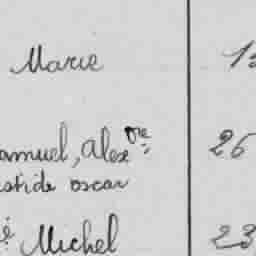 Marie
amuel, Alexdre 26
astide oscar
Michel 23